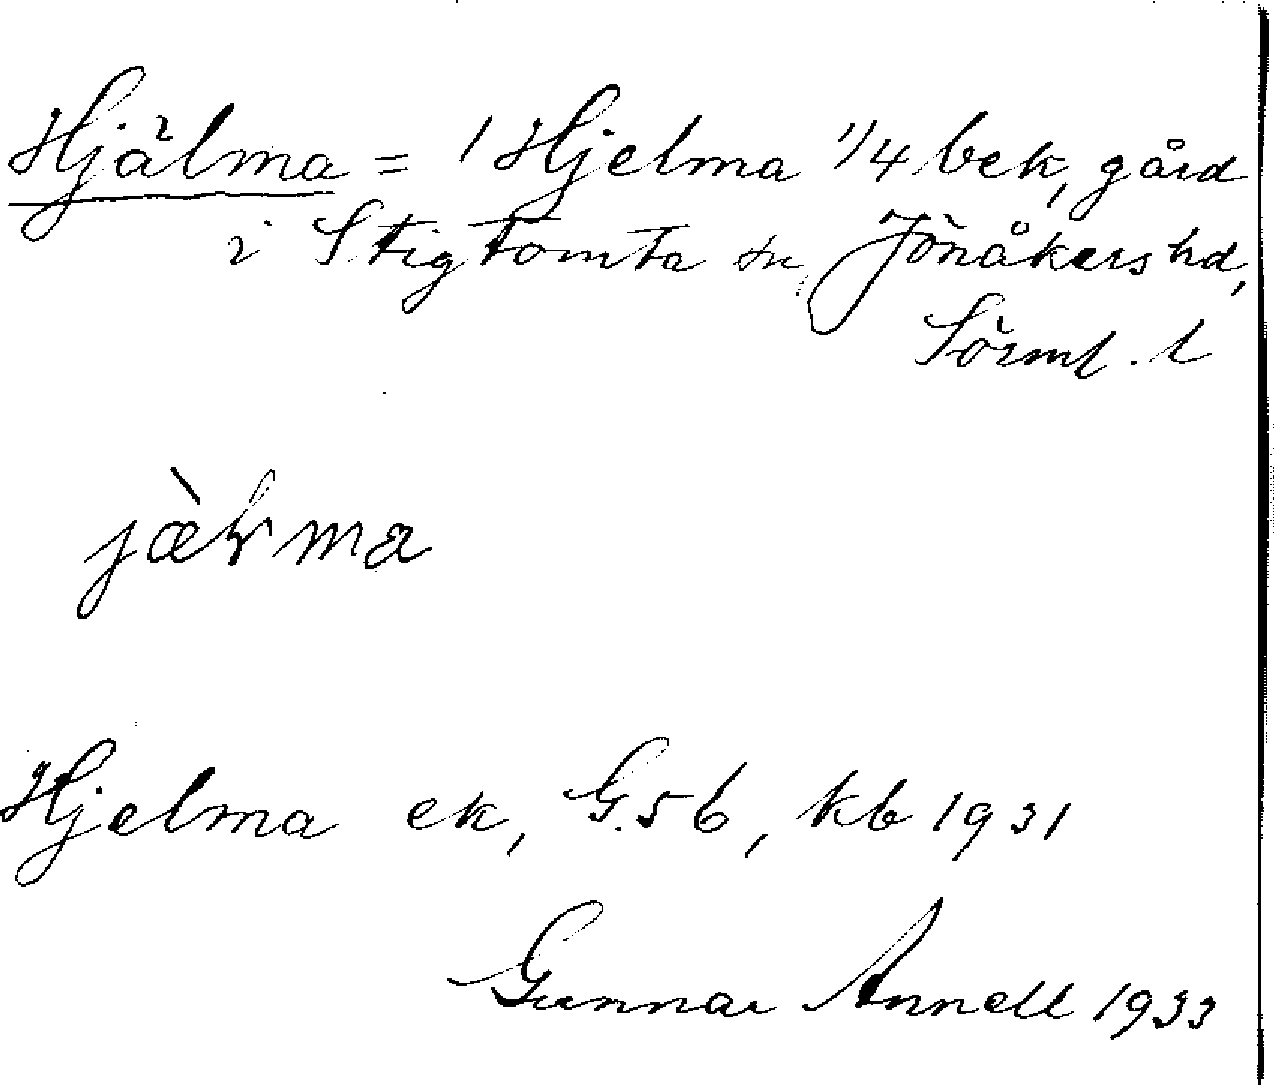 Hjälma = 1 Hjelma 1/4 bek, gård
i Stigtomta sn, Jönåkers hd,
Sörml. l
Hjelma ek, G.56, kb 1931
Gunnar Annell 1933